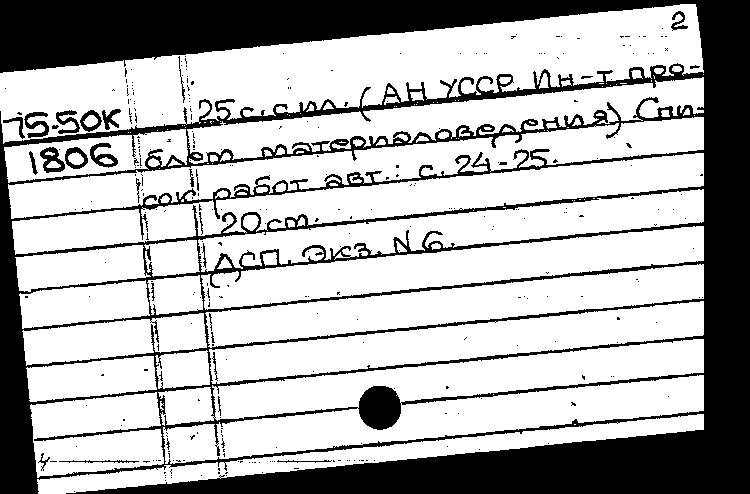 2
75-50К 25 с. с ил. (АН УССР. Ин-т про-
1806 блем материаловедения) Спи-
сок работ авт.: с. 24-25.
20 см.
ДСП. Экз. N 6.